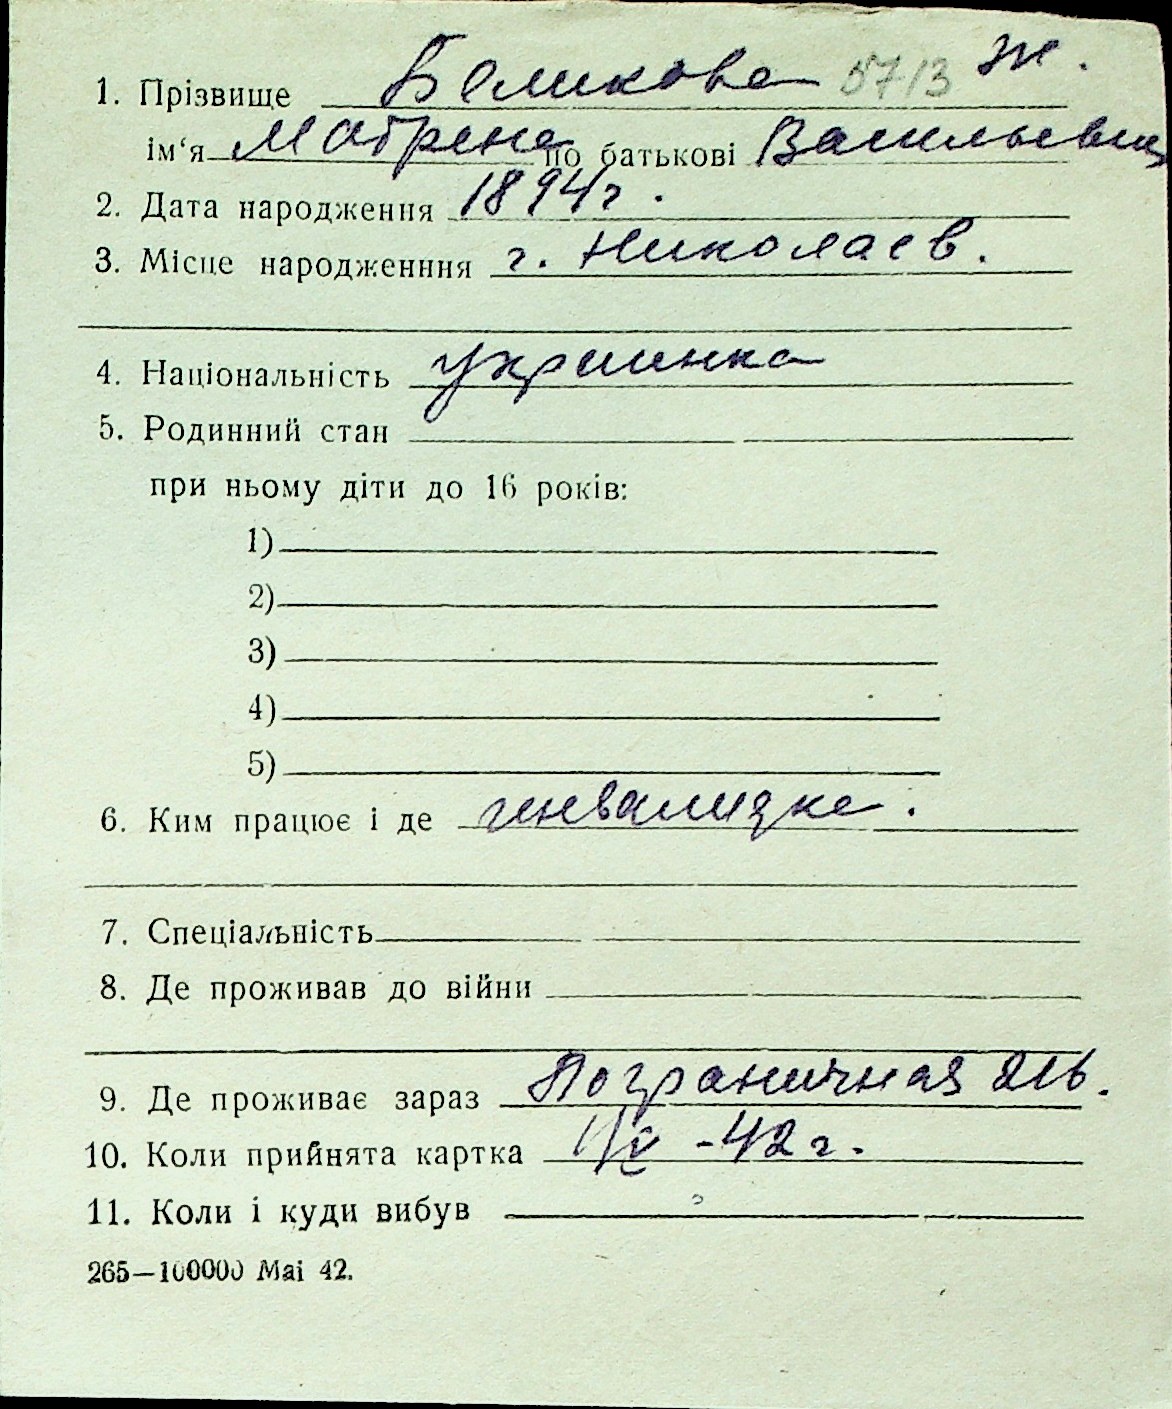 1. Прізвище Беликова 5713 Ж.
ім‘я Матрена по батькові Васильевна
2. Дата народження 1894 г.
3. Місце народженння г. Николаев.
4. Національність украинка
5. Родинний стан
при ньому діти до 16 років:
1)
2)
3)
4)
5)
6. Ким працює і де инвалидка.
7. Спеціальність
8. Де проживав до війни
9. Де проживає зараз Пограничная 216.
10. Коли прийнята картка 1/X -42 г.
11. Коли і куди вибув
265—100000 Маі 42.